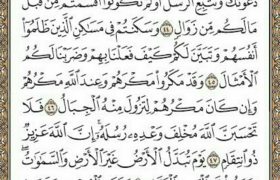 دَعْوَتَكَ وَنَتَّبِعِ ٱلرُّسُلَ أَوَلَمْ تَكُونُوٓا۟ أَقْسَمْتُم مِّن قَبْلُ
مَا لَكُم مِّن زَوَالٍ ٤٤ وَسَكَنتُمْ فِى مَسَٰكِنِ ٱلَّذِينَ ظَلَمُوٓا۟
أَنفُسَهُمْ وَتَبَيَّنَ لَكُمْ كَيْفَ فَعَلْنَا بِهِمْ وَضَرَبْنَا لَكُمُ
ٱلْأَمْثَالَ ٤٥ وَقَدْ مَكَرُوا۟ مَكْرَهُمْ وَعِندَ ٱللَّهِ مَكْرُهُمْ
وَإِن كَانَ مَكْرُهُمْ لِتَزُولَ مِنْهُ ٱلْجِبَالُ ٤٦ فَلَا
تَحْسَبَنَّ ٱللَّهَ مُخْلِفَ وَعْدِهِۦ رُسُلَهُۥٓ إِنَّ ٱللَّهَ عَزِيزٌ
ذُو ٱنتِقَامٍ ٤٧ يَوْمَ تُبَدَّلُ ٱلْأَرْضُ غَيْرَ ٱلْأَرْضِ وَٱلسَّمَٰوَٰتُ